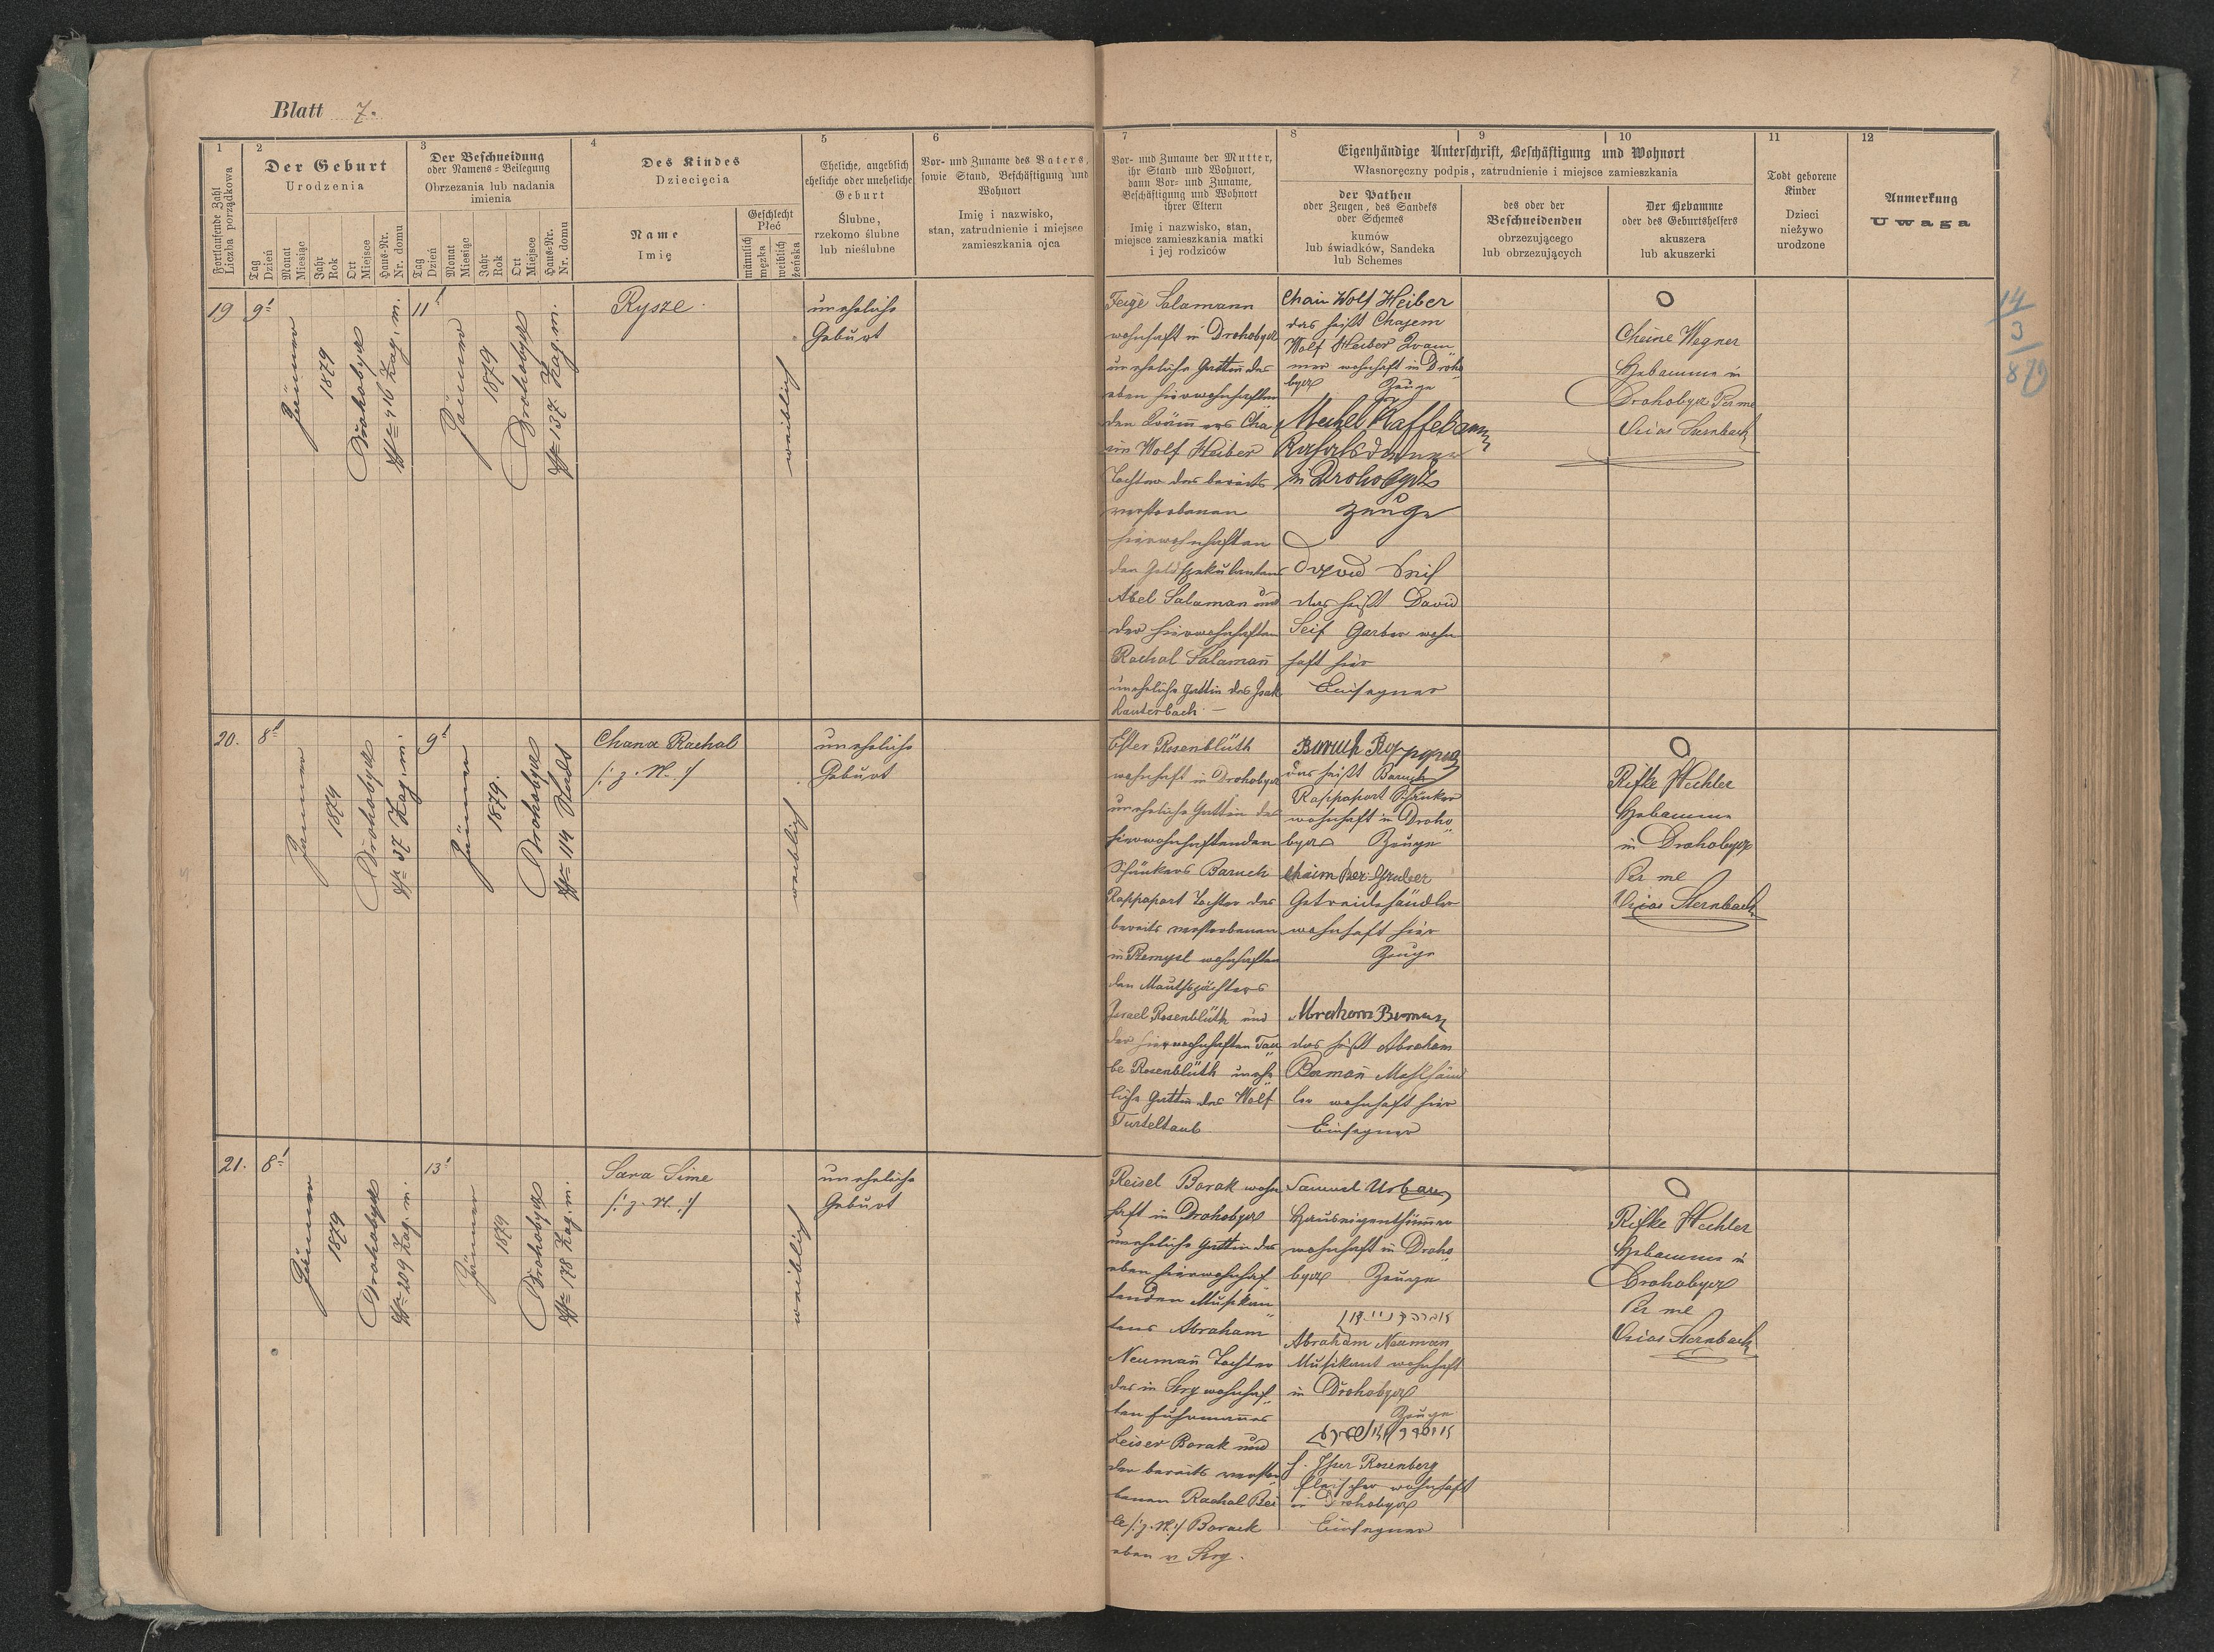 Blatt 7.
1
Fortlaufende Zahl
Liczba porządkowa
2
Der Geburt
Urodzenia
Tag
Dzień
Monat
Miesiąc
Jahr
Rok
Ort
Miejsce
Haus-Nr.
Nr. domu
3
Der Beschneidung
oder Namens-Beilegung
Obrzezania lub nadania
imienia
Tag
Dzień
Monat
Miesiąc
Jahr
Rok
Ort
Miejsce
Haus-Nr.
Nr. domu
4
Des Kindes
Dziecięcia
Name
Imię
Geschlecht
Płeć
männlich
męzka
weiblich
żeńska
5
Eheliche, angeblich
eheliche oder uneheliche
Geburt
Ślubne,
rzekomo ślubne
lub nieślubne
6
Vor- und Zuname des Vaters,
sowie Stand, Beschäftigung und
Wohnort
Imię i nazwisko,
stan, zatrudnienie i miejsce
zamieszkania ojca
7
Vor- und Zuname der Mutter,
ihr Stand und Wohnort,
dann Vor- und Zuname,
Beschäftigung und Wohnort
ihrer Eltern
Imię i nazwisko, stan,
miejsce zamieszkania matki
i jej rodziców
8
9
10
Eigenhändige Unterschrift, Beschäftigung und Wohnort
Własnoręczny podpis, zatrudnienie i miejsce zamieszkania
der Pathen
oder Zeugen, des Sandeks
oder Schemes
kumów
lub świadków, Sandeka
lub Schemes
des oder der
Beschneidenden
obrzezującego
lub obrzezujących
Der Hebamme
oder des Geburtshelfers
akuszera
lub akuszerki
11
Todt geborene
Kinder
Dzieci
nieżywo
urodzone
12
Anmerkung
Uwaga
19
9t
Jänner
1879
Drohobycz
Zag. m.
11t
Jänner
1879
Drohobycz
No 137 Zag. m.
Rysze
weiblich
uneheliche
Geburt
Feige Salamann
wohnhaft in Drohobycz
uneheliche Gattin des
eben hierwohnhaften
den Krämers Cha
im Wolf Heiber
Tochter des bereits
verstorbenen
hierwohnhaften
den Geldspekulanten
Abel Salaman und
der hierwohnhaften
Rachel Salamañ
uneheliche Gattin des Isak
Lauterbach. —
Chaim Wolf Heiber
das heißt Chajem
Wolf Heiber Kräm
mer wohnhaft in Droho
bycz Zeuge
Mechel Kaffebaum
Kahalsdiener
in Drohobycz
Zeuge
das heißt David
Seif Garber wohn
haft hier
Einsegner
Cheine Wegner
Hebamme in
Drohobycz Per me
Urias Sternbach
14/3/879
20.
8t
Jänner
1879
Drohobycz
No 37 Zag. m.
9t
Jänner
1879.
Drohobycz
No 114 Stadt
Chana Rachel
/: z. N. :/
weiblich
uneheliche
Geburt
Ester Rosenblüth
wohnhaft in Drohobycz
uneheliche Gattin des
hierwohnhaftenden
Schänkers Baruch
Rappaport Tochter des
bereits verstorbenen
in Przemysl wohnhaften
den Mauthpächters
Israel Rosenblüth und
der hierwohnhaften Tau
be Rosenblüth unehe
liche Gattin des Wolf
Turteltaub
Baruch
das heißt Baruch
Rappaport Schänker
wohnhaft in Droho
bycz Zeuge
Chaim Ber Gruber
Getreidehändler
wohnhaft hier
Zeuge
Abraham
das heißt Abraham
Bermañ Mehlhänd
ler wohnhaft hier
Einsegner
Rifke Wechler
Hebamme
in Drohobycz
Per me
Urias Sternbach
21.
8t
Jänner
1879
Drohobycz
No 209 Zag. m.
13t
Jänner
1879
Drohobycz
No 178 Zag. m.
Sara Sime
/: z. N. :/
weiblich
uneheliche
Geburt
Reisel Borak wohn
haft in Drohobycz
uneheliche Gattin des
eben hierwohnhaf
tenden Musikan
tens Abraham
Neumañ Tochter
des in Stry wohnhaf
ten Fuhrmannes
Leiser Borak und
der bereits verstor
benen Rachel Bei
le /: z. N. :/ Borack
eben in Stry.
Samuel Urban
Hauseigenthümer
wohnhaft in Droho
bycz Zeuge
Abraham Neuman
Musikant wohnhaft
in Drohobycz
Zeuge
Rosenberg
Fleischer wohnhaft
in Drohobycz
Einsegner
Rifke Wechler
Hebamme in
Drohobycz
Per me
Urias Sternbach